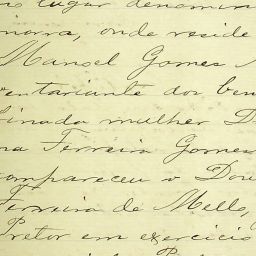 no lugar denomin
onde reside
Manoel Gomes
entariante dos ben
finada mulher D
na Ferreira Gomes
ompareceu o Dou
Ferreira de Mello,
Pretor em exercicio